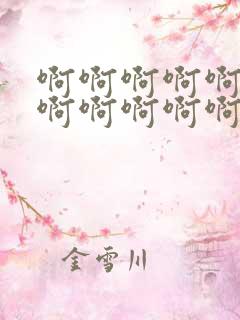 啊啊啊啊啊
啊啊啊啊啊
金雪川